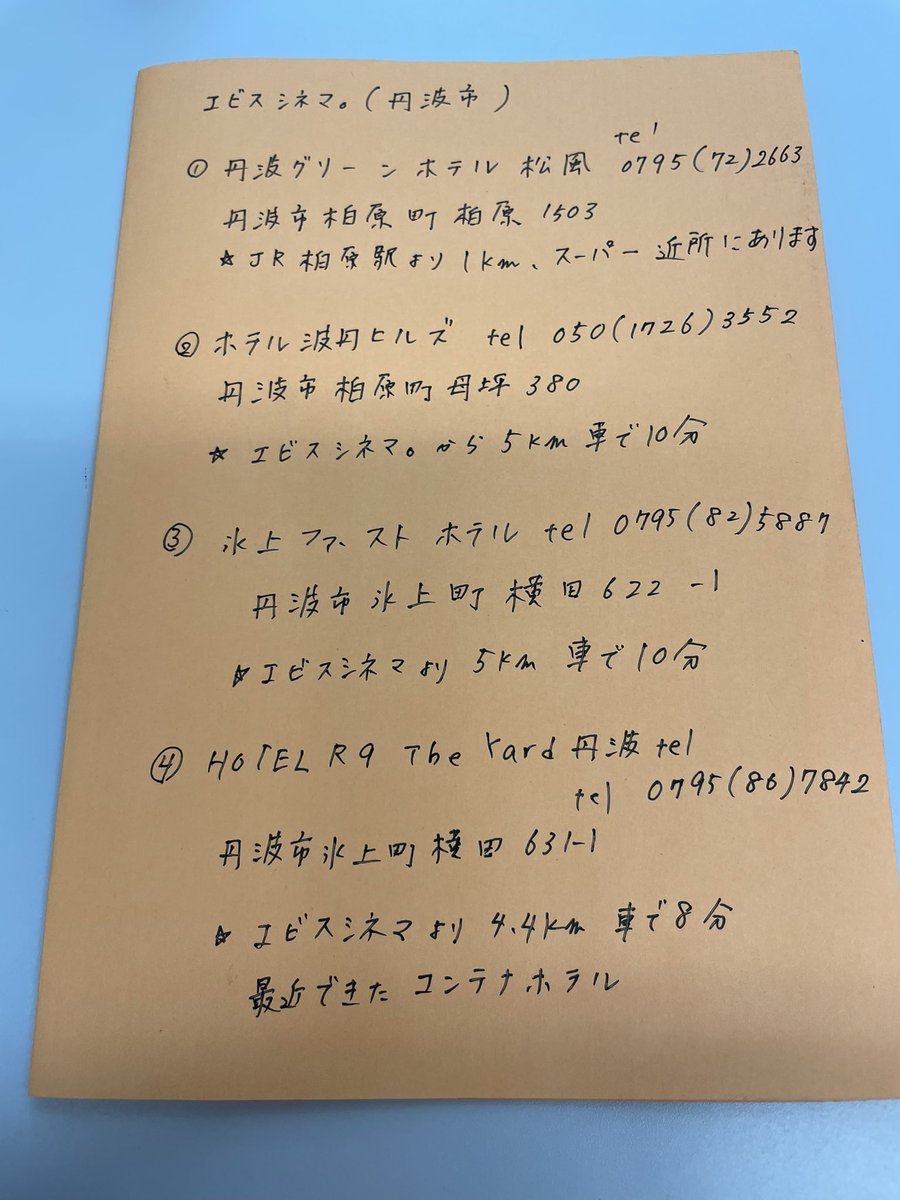 エビスシネマ。(丹波市)
① 丹波グリーンホテル 松風 tel 0795(72)2663
丹波市柏原町柏原 1503
☆ JR柏原駅より 1km、スーパー近所にあります
② ホテル波丹ヒルズ tel 050(1726)3552
丹波市柏原町母坪 380
☆ エビスシネマ。から 5km 車で10分
③ 氷上ファーストホテル tel 0795(82)5887
丹波市氷上町横田 622-1
☆ エビスシネマより 5km 車で10分
④ HOTEL R9 The Yard 丹波 tel
tel 0795(86)7842
丹波市氷上町横田 631-1
☆ エビスシネマより 4.4km 車で8分
最近できた コンテナホテル